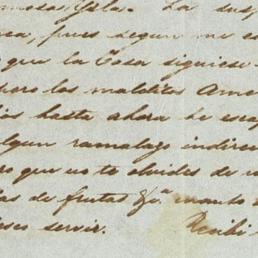 mosa Ysla. La susp
rea, pues segun me es
que la Cosa siguiese
pero los malditos Ame
ios hasta ahora he esca
algun ramalazo indirec
ro que no te olvides de m
as de frutas &ca. cuanto
eses servir. Recibi